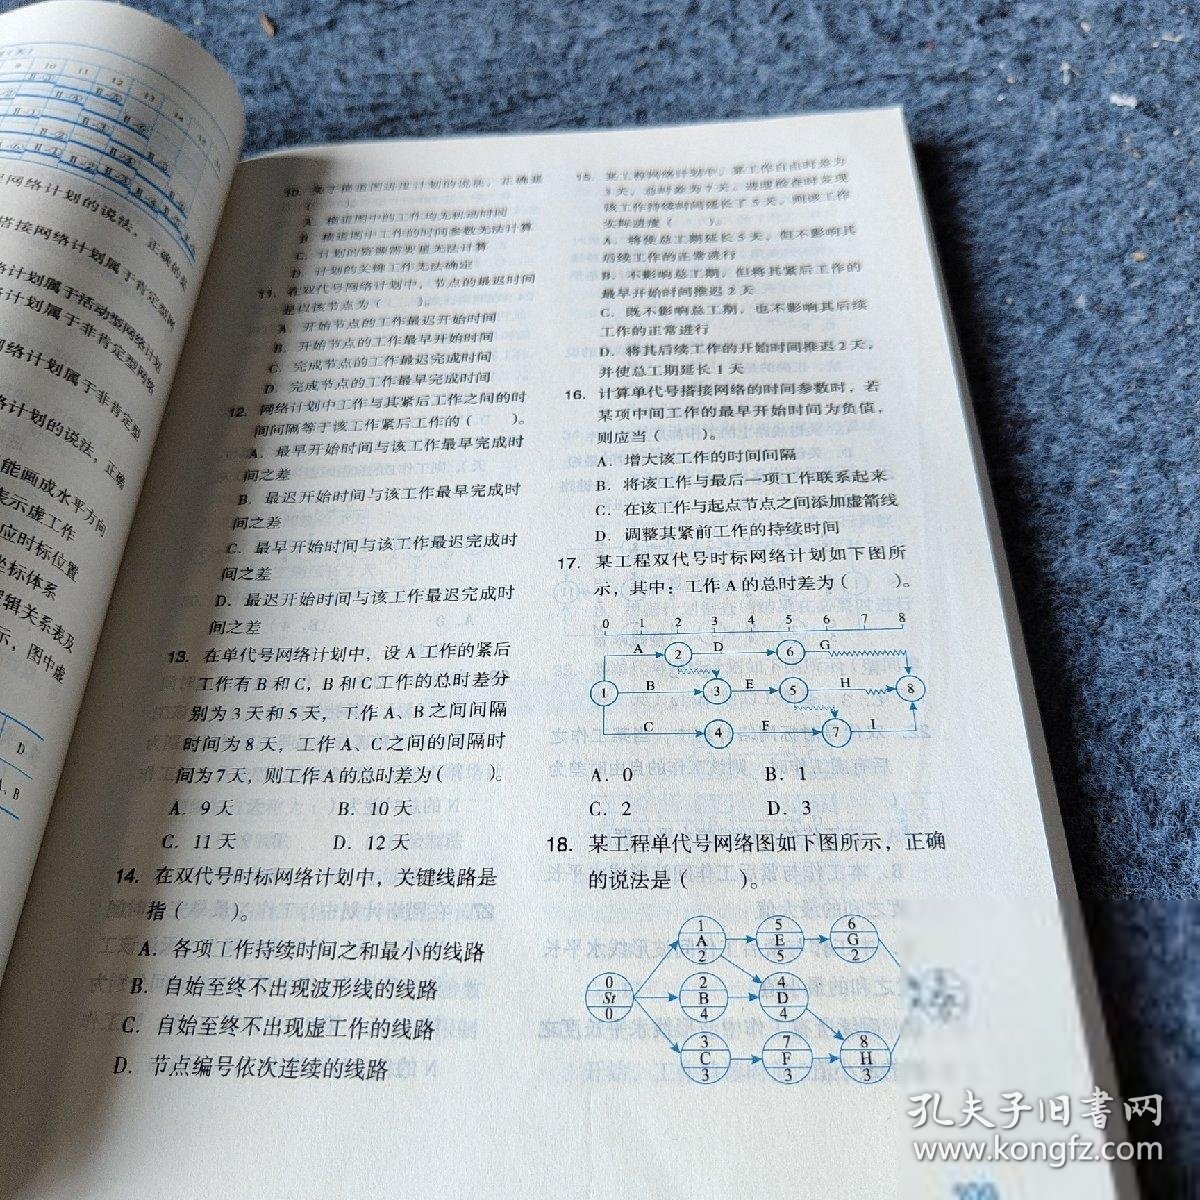 9 10 11 12 13 14 15
网络计划的说法，正确的是
搭接网络计划属于肯定型网
络计划属于活动型网络计划
计划属于非肯定型网络
网络计划属于非肯定型
络计划的说法，正确
能画成水平方向
表示虚工作
应时标位置
坐标体系
逻辑关系表及
示，图中虚
D
A、B
10. 关于横道图进度计划的说法，正确是
（　　）。
A. 横道图中的工作均无机动时间
B. 横道图中工作的时间参数无法计算
C. 计划的资源需要量无法计算
D. 计划的关键工作无法确定
11. 在双代号网络计划中，节点的最迟时间
是以该节点为（　　）。
A. 开始节点的工作最迟开始时间
B. 开始节点的工作最早开始时间
C. 完成节点的工作最迟完成时间
D. 完成节点的工作最早完成时间
12. 网络计划中工作与其紧后工作之间的时
间间隔等于该工作紧后工作的（　　）。
A. 最早开始时间与该工作最早完成时
间之差
B. 最迟开始时间与该工作最早完成时
间之差
C. 最早开始时间与该工作最迟完成时
间之差
D. 最迟开始时间与该工作最迟完成时
间之差
13. 在单代号网络计划中，设A工作的紧后
工作有B和C，B和C工作的总时差分
别为3天和5天，工作A、B之间间隔
时间为8天，工作A、C之间的间隔时
间为7天，则工作A的总时差为（　　）。
A. 9天　B. 10天
C. 11天　D. 12天
14. 在双代号时标网络计划中，关键线路是
指（　　）。
A. 各项工作持续时间之和最小的线路
B. 自始至终不出现波形线的线路
C. 自始至终不出现虚工作的线路
D. 节点编号依次连续的线路
15. 某工程网络计划中，某工作自由时差为
3天，总时差为7天，进度检查时发现
该工作持续时间延长了5天，则该工作
实际进度（　　）。
A. 将使总工期延长5天，但不影响其
后续工作的正常进行
B. 不影响总工期，但将其紧后工作的
最早开始时间推迟2天
C. 既不影响总工期，也不影响其后续
工作的正常进行
D. 将其后续工作的开始时间推迟2天，
并使总工期延长1天
16. 计算单代号搭接网络的时间参数时，若
某项中间工作的最早开始时间为负值，
则应当（　　）。
A. 增大该工作的时间间隔
B. 将该工作与最后一项工作联系起来
C. 在该工作与起点节点之间添加虚箭线
D. 调整其紧前工作的持续时间
17. 某工程双代号时标网络计划如下图所
示，其中：工作A的总时差为（　　）。
0 1 2 3 4 5 6 7 8
A 2 D 6 G
1 B 3 E 5 H 8
C 4 F 7 I
A. 0　B. 1
C. 2　D. 3
18. 某工程单代号网络图如下图所示，正确
的说法是（　　）。
1 5 6
A E G
2 5 2
0 2 4
St B D
0 4 4
3 7 8
C F H
3 3 3
孔夫子旧书网
www.kongfz.com